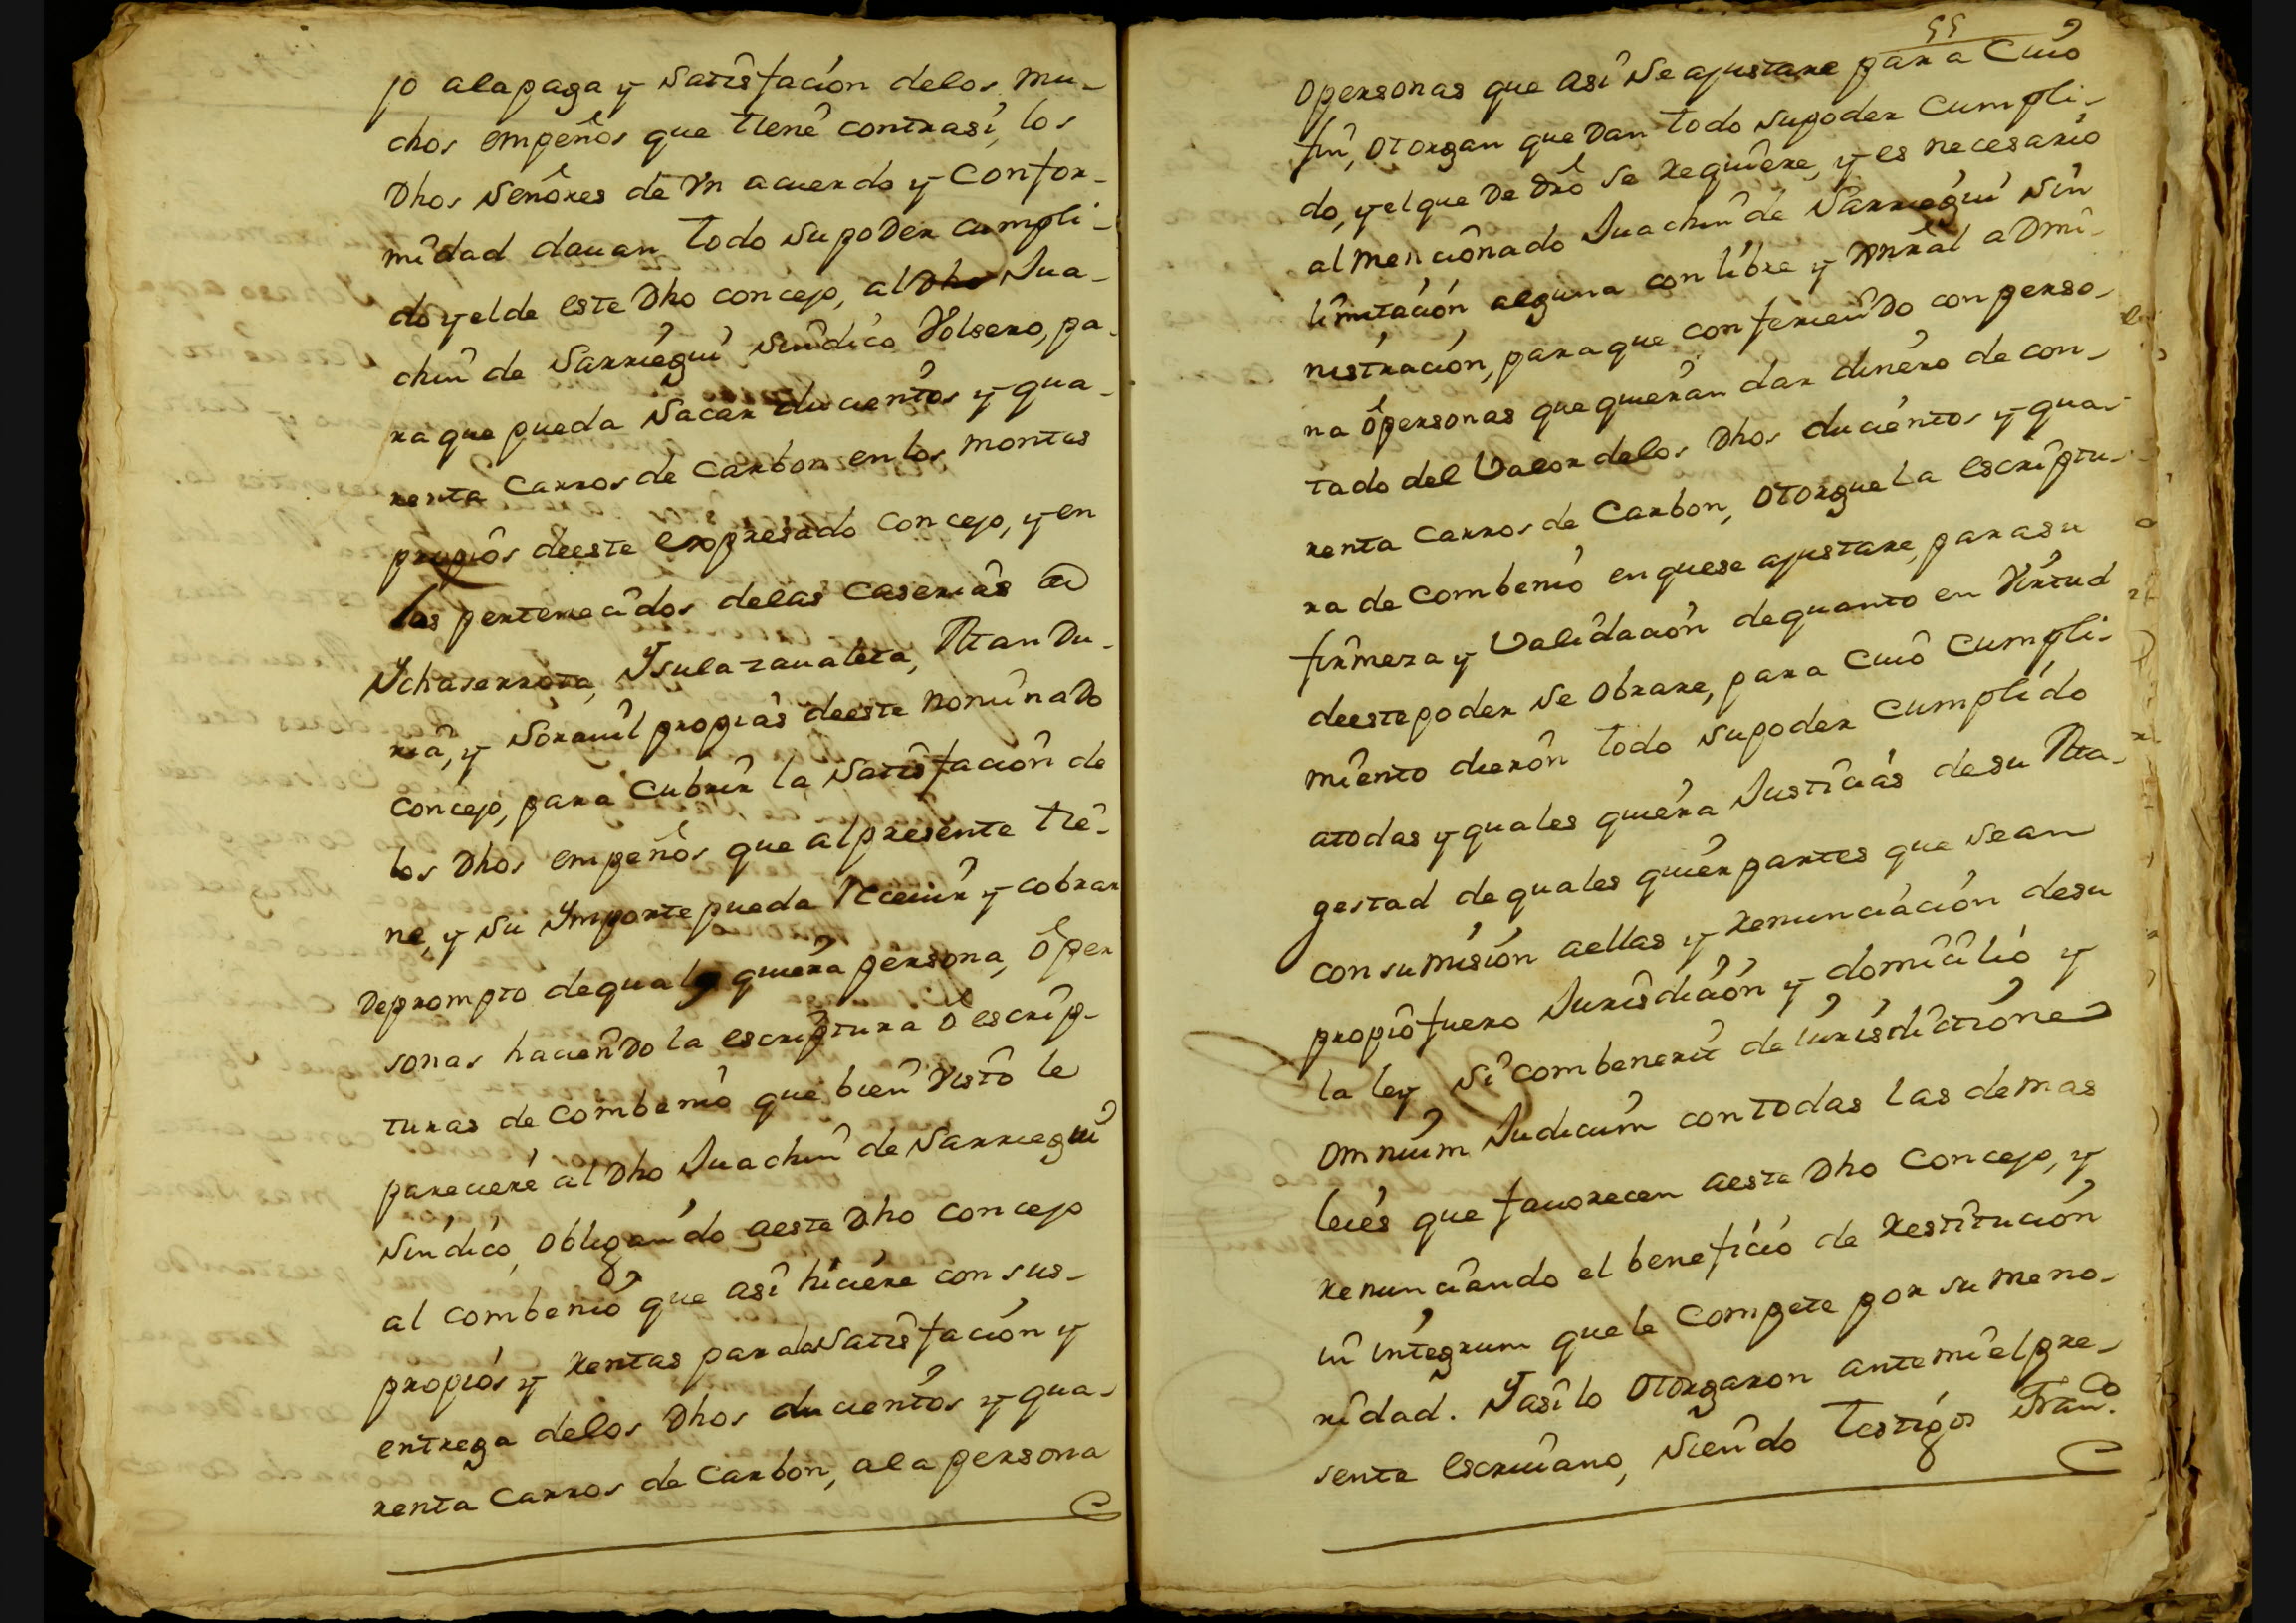 jo ala paga y Satisfación delos mu-
chos empeños que tiene contrasi, los
Dhos Señores de Vn acuerdo y Confor-
midad dauan todo su poder cumpli-
do y elde este Dho concejo, al Dho Jua-
chin de Sarriegui Sindico Volsero, pa-
ra que pueda Sacar ducientos y qua-
renta Carros de Carbon en los montes
propios deeste expresado Concejo, y en
los pertenecidos delas Caserias de
Ychaserrota, Ysulazaualeta, Atandu-
ria, y Sorauil propias deeste nominado
Concejo, para Cubrir la Satisfación de
los Dhos empeños que alpresente tie-
ne, y su Ymporte pueda Receuir y cobrar
Deprompto dequalquiera persona, ó per
sonas haciendo la escriptura ó escrip-
turas de combenio que bien visto le
pareciere al Dho Juachin de Sarriegui
Sindico, obligando aeste Dho concejo
al combenio que asi hiciere con sus-
propios y Rentas para la Satisfación y
entrega delos Dhos ducientos y qua-
renta Carros de Carbon, ala persona
55
o personas que asi Se ajustare para Cuio
fin, otorgan que Dan todo supoder Cumpli-
do, y elque De Dro Se Requiere, y es necesario
al mencionado Juachin de Sarriegui Sin
limitación alguna con libre y Gnral admi-
nistración, paraque confiriendo con perso-
na ó personas que quieran dar dinero de con-
tado del Valor delos Dhos ducientos y qua-
renta Carros de Carbon, otorgue la escriptu-
ra de Combenio en quese ajustare, para su
firmeza y Validación dequanto en Virtud
deeste poder Se obrare, para Cuio Cumpli-
miento dieron todo Supoder Cumplido
atodas y quales quiera Justicias desu Ma-
gestad de quales quier partes que Sean
con sumisión aellas y Renunciación desu
propio fuero Jurisdición y domicilio y
la ley Si combenerit de iurisdictione
omnium Judicum con todas las demas
leies que fauorecen aeste Dho Concejo, y
Renunciando el beneficio de Restitución
in integrum que le Compete por su meno-
ridad. Yasilo otorgaron antemi el pre-
sente escriuano, Siendo testigos Fran.co